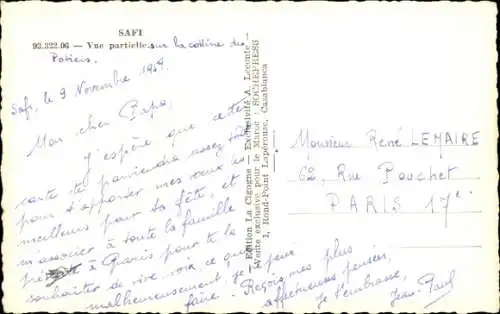 SAFI
92.322.06 — Vue partielle sur la colline des
Potiers.
Safi, le 9 Novembre 1959.
Mon cher Papa,
J'espère que cette
carte te parviendra assez tôt
pour t'apporter mes vœux les
meilleurs pour ta fête, et
m'associer à toute la famille
à Paris pour te le
souhaiter de vive voix, ce que
malheureusement, je ne peux
faire. Reçois mes plus
affectueuses pensées,
Je t'embrasse,
Jean-Paul
Edition La Cigogne — Exclusivité A. Leconte —
Vente exclusive pour le Maroc : SOCHEPRESS
1, Rond-Point Lapérouse, Casablanca
Monsieur René LEMAIRE
62, Rue Pouchet
PARIS 17e.